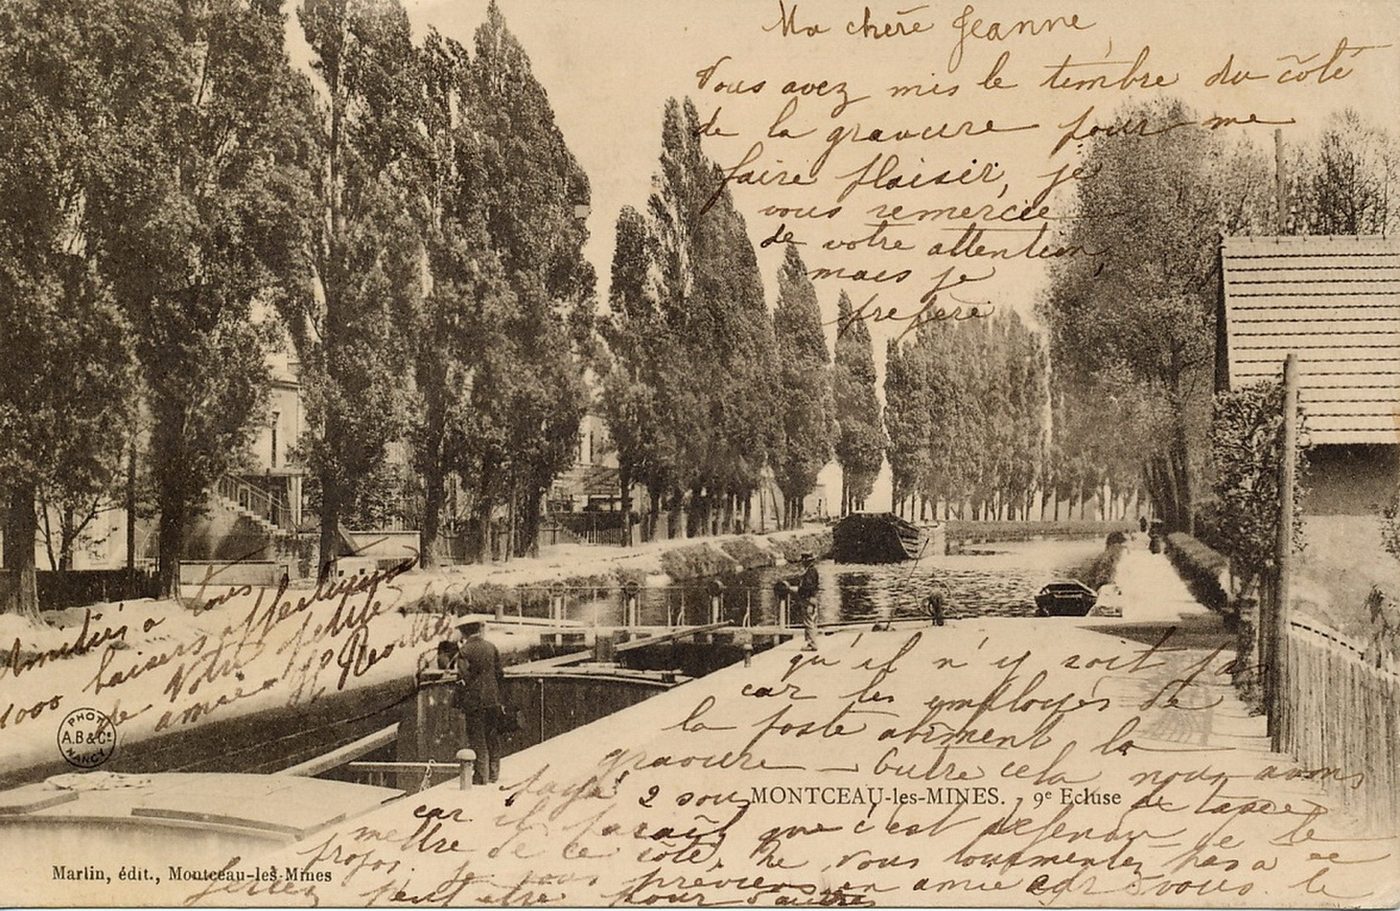 Ma chère Jeanne,
Vous avez mis le timbre du côté
de la gravure pour me
faire plaisir, je
vous remercie
de votre attention,
mais je
préfère
qu'il n'y soit pas
car les employés de
la poste abîment la
gravure — Outre cela nous avons
payé 2 sous de taxe
car il paraît que c'est défendu de le
mettre de ce côté. Ne vous tourmentez pas à ce
propos, je vous préviens en amie car vous le
feriez peut être pour d'autres
Amitiés à tous
1000 baisers affectueux
de Votre petite
amie
MONTCEAU-les-MINES. 9e Ecluse
PHOT
A.B & Cie
NANCY
Martin, édit., Montceau-les-Mines